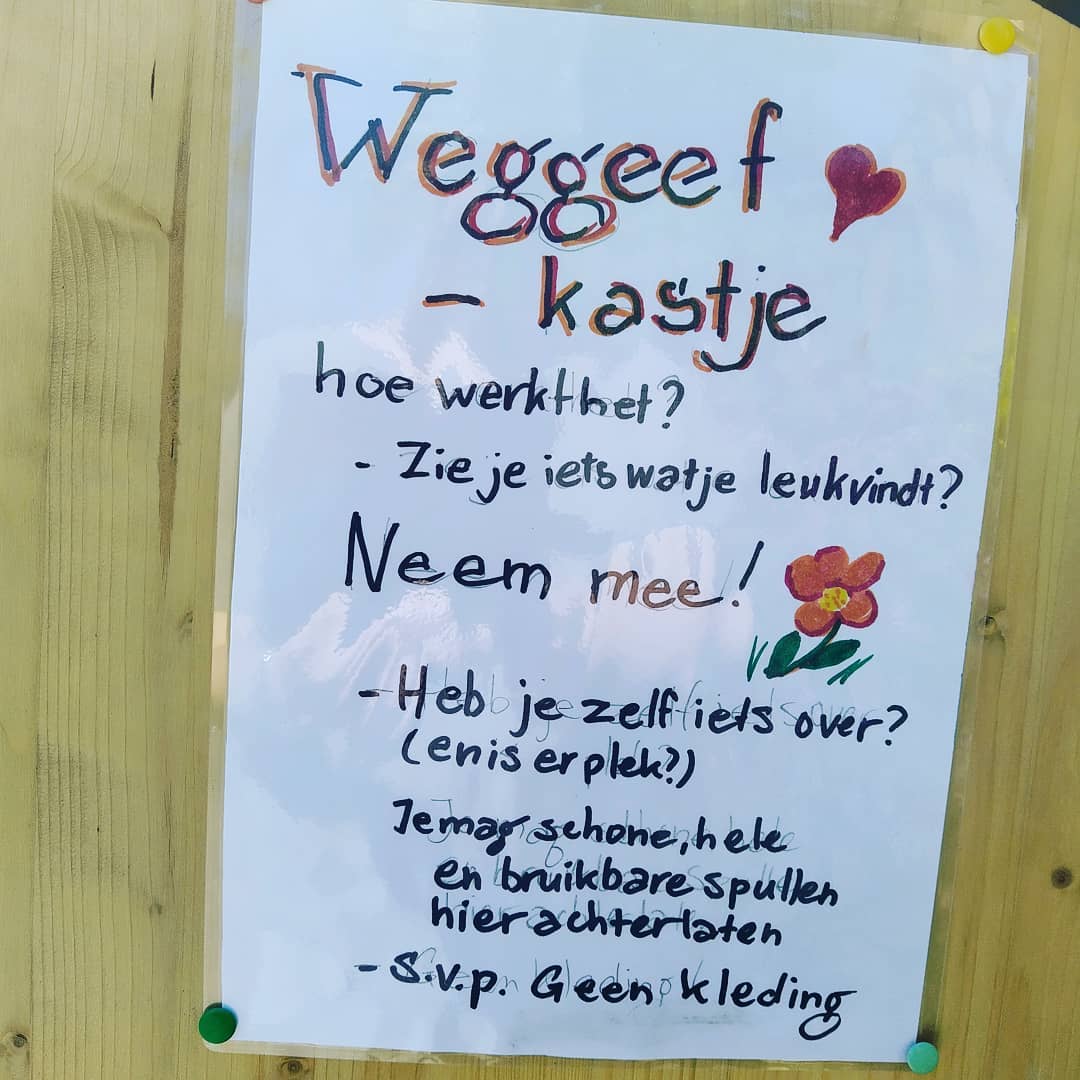 Weggeef
- kastje
hoe werkt het?
- Zie je iets wat je leuk vindt?
Neem mee!
- Heb je zelf iets over?
(en is er plek?)
Je mag schone, hele
en bruikbare spullen
hier achterlaten
- S.v.p. Geen kleding